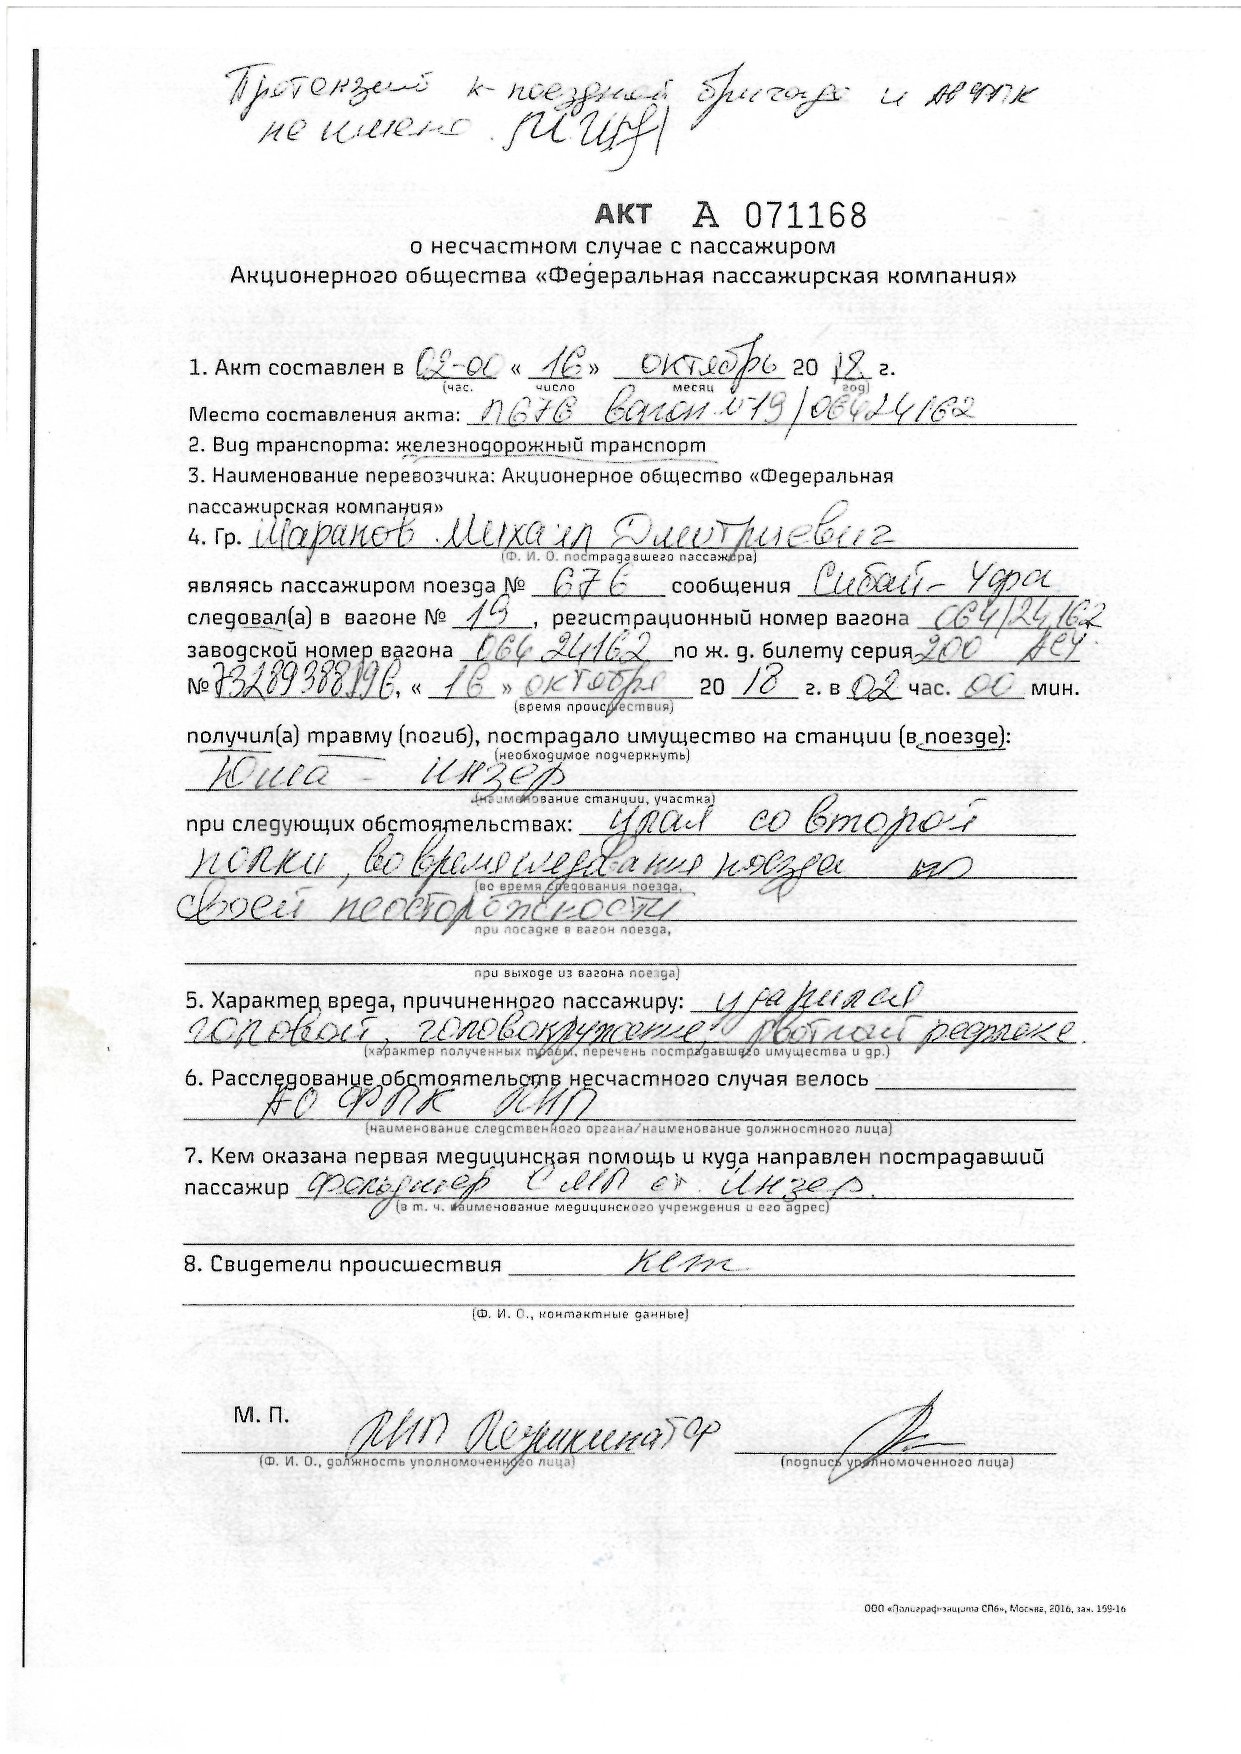 Протензий к поездной бригаде и АО ФПК
не имею.
АКТ А 071168
о несчастном случае с пассажиром
Акционерного общества «Федеральная пассажирская компания»
1. Акт составлен в 02-00 « 16 » октябрь 20 18 г.
(час. число месяц год)
Место составления акта: п676 вагон №19/06424162
2. Вид транспорта: железнодорожный транспорт
3. Наименование перевозчика: Акционерное общество «Федеральная
пассажирская компания»
4. Гр. Шарапов Михаил Дмитриевич
(Ф. И. О. пострадавшего пассажира)
являясь пассажиром поезда № 676 сообщения Сибай - Уфа
следовал(а) в вагоне № 19, регистрационный номер вагона 064/24162
заводской номер вагона 064 24162 по ж. д. билету серия 200
№ 73289388196, « 16 » октября 20 18 г. в 02 час. 00 мин.
(время происшествия)
получил(а) травму (погиб), пострадало имущество на станции (в поезде):
(необходимое подчеркнуть)
Юша - Инзер
(наименование станции, участка)
при следующих обстоятельствах: упал со второй
полки, во время следования поезда по
(во время следования поезда,
своей неосторожности
при посадке в вагон поезда,
при выходе из вагона поезда)
5. Характер вреда, причиненного пассажиру: ударился
головой, головокружение, рвотный рефлекс.
(характер полученных травм, перечень пострадавшего имущества и др.)
6. Расследование обстоятельств несчастного случая велось
АО ФПК ЛНП
(наименование следственного органа/наименование должностного лица)
7. Кем оказана первая медицинская помощь и куда направлен пострадавший
пассажир Фельдшер СМП ст. Инзер.
(в т. ч. наименование медицинского учреждения и его адрес)
8. Свидетели происшествия нет
(Ф. И. О., контактные данные)
М. П.
ЛНП
(Ф. И. О., должность уполномоченного лица) (подпись уполномоченного лица)
ООО «Полиграфзащита СПб», Москва, 2016, зак. 159-16